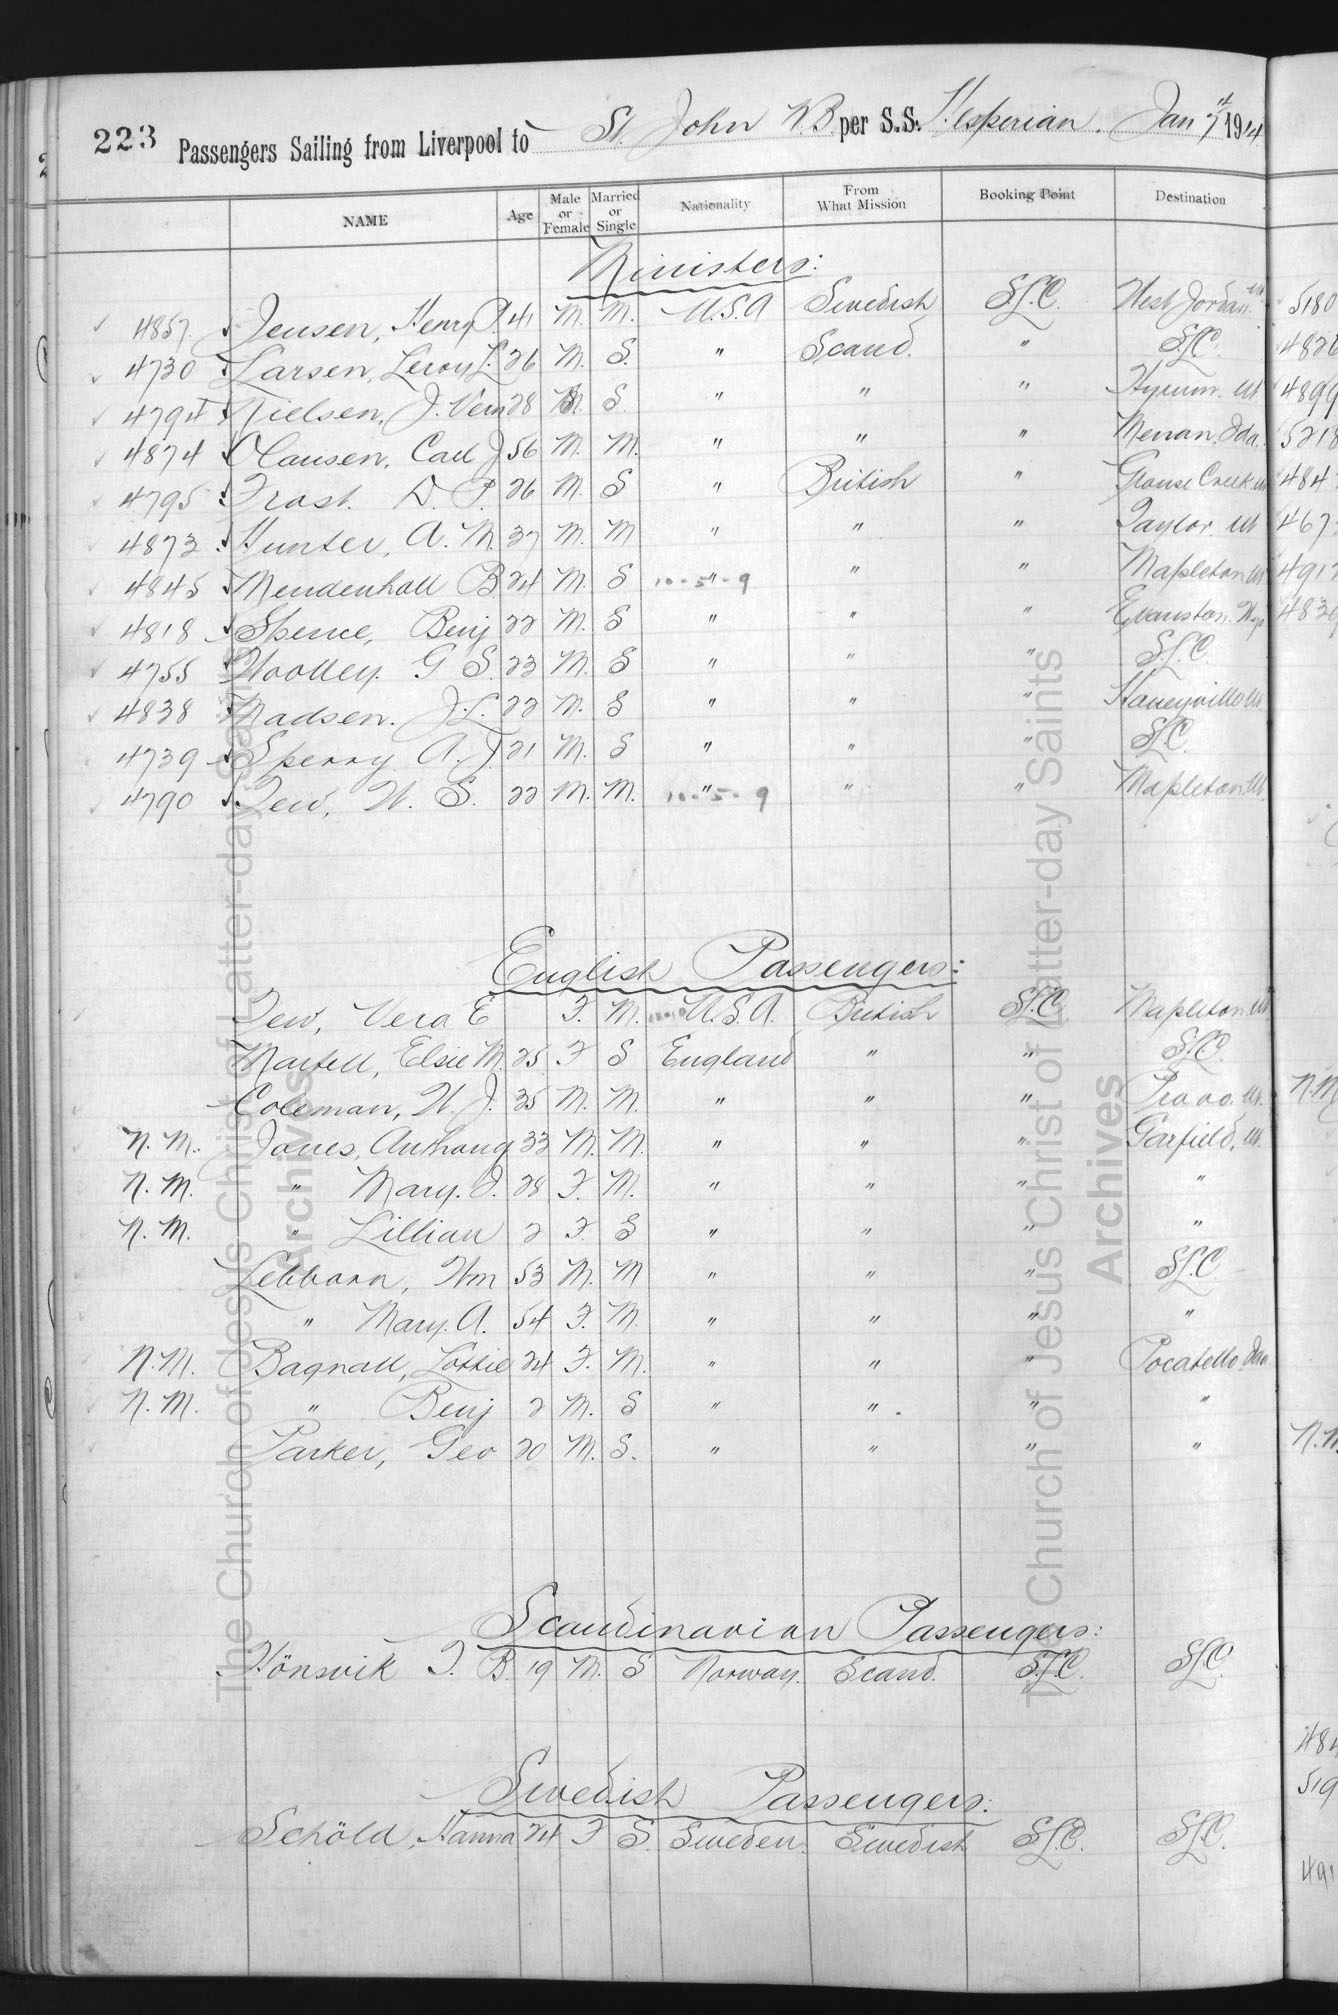 223 Passengers Sailing from Liverpool to St. John N.B. per S.S. Hesperian. Jan 7 1914
NAME Age Male or Female Married or Single Nationality From What Mission Booking Point Destination
Ministers:
4857 Jensen, Henry P. 41 M. M. U.S.A Swedish S.L.C. West Jordan Ut
4730 Larsen, Leroy L. 26 M. S. " Scand. " S.L.C.
4794 Nielsen, J. Vern 28 M. S. " " " Hyrum. Ut
4874 Clausen, Carl J 56 M. M. " " " Menan. Ida.
4795 Frost. D. P. 26 M. S " British " Grouse Creek Ut
4873 Hunter, A. M. 37 M. M " " " Taylor. Ut
4845 Mendenhall B 24 M. S 10-5-9 " " " Mapleton Ut
4818 Spence, Benj 22 M. S " " " Evanston. Wyo
4755 Woolley. G S. 23 M. S " " " S.L.C.
4838 Madsen. J.L. 22 M. S " " " Honeyville Ut
4739 Sperry A. J. 21 M. S " " " S.L.C.
4790 Tew, W. S. 22 M. M. 10-5-9 " " " Mapleton. Ut.
English Passengers:
Tew, Vera E F. M. U.S.A. British S.L.C. Mapleton. Ut
Martell, Elsie M. 25 F S England " " S.L.C.
Coleman, W. J. 35 M. M. " " " Provo. Ut.
N. M. Jones, Anthony 33 M. M. " " " Garfield, Ut.
N. M. " Mary. J. 28 F. M. " " " "
N. M. " Lillian 2 F. S " " " "
Lebbara, Wm 53 M. M " " " S.L.C
" Mary. A. 54 F. M. " " " "
N.M. Bagnall, Lottie 24 F. M. " " " Pocatello Ida
N. M. " Benj 2 M. S " " " "
Parker, Geo 20 M. S. " " " "
Scandinavian Passengers:
Hönsvik T. B. 19 M. S Norway. Scand. S.L.C. S.L.C.
Swedish Passengers:
Schöld, Hanna 24 F S. Sweden. Swedish S.L.C. S.L.C.
The Church of Jesus Christ of Latter-day Saints
Archives
The Church of Jesus Christ of Latter-day Saints
Archives